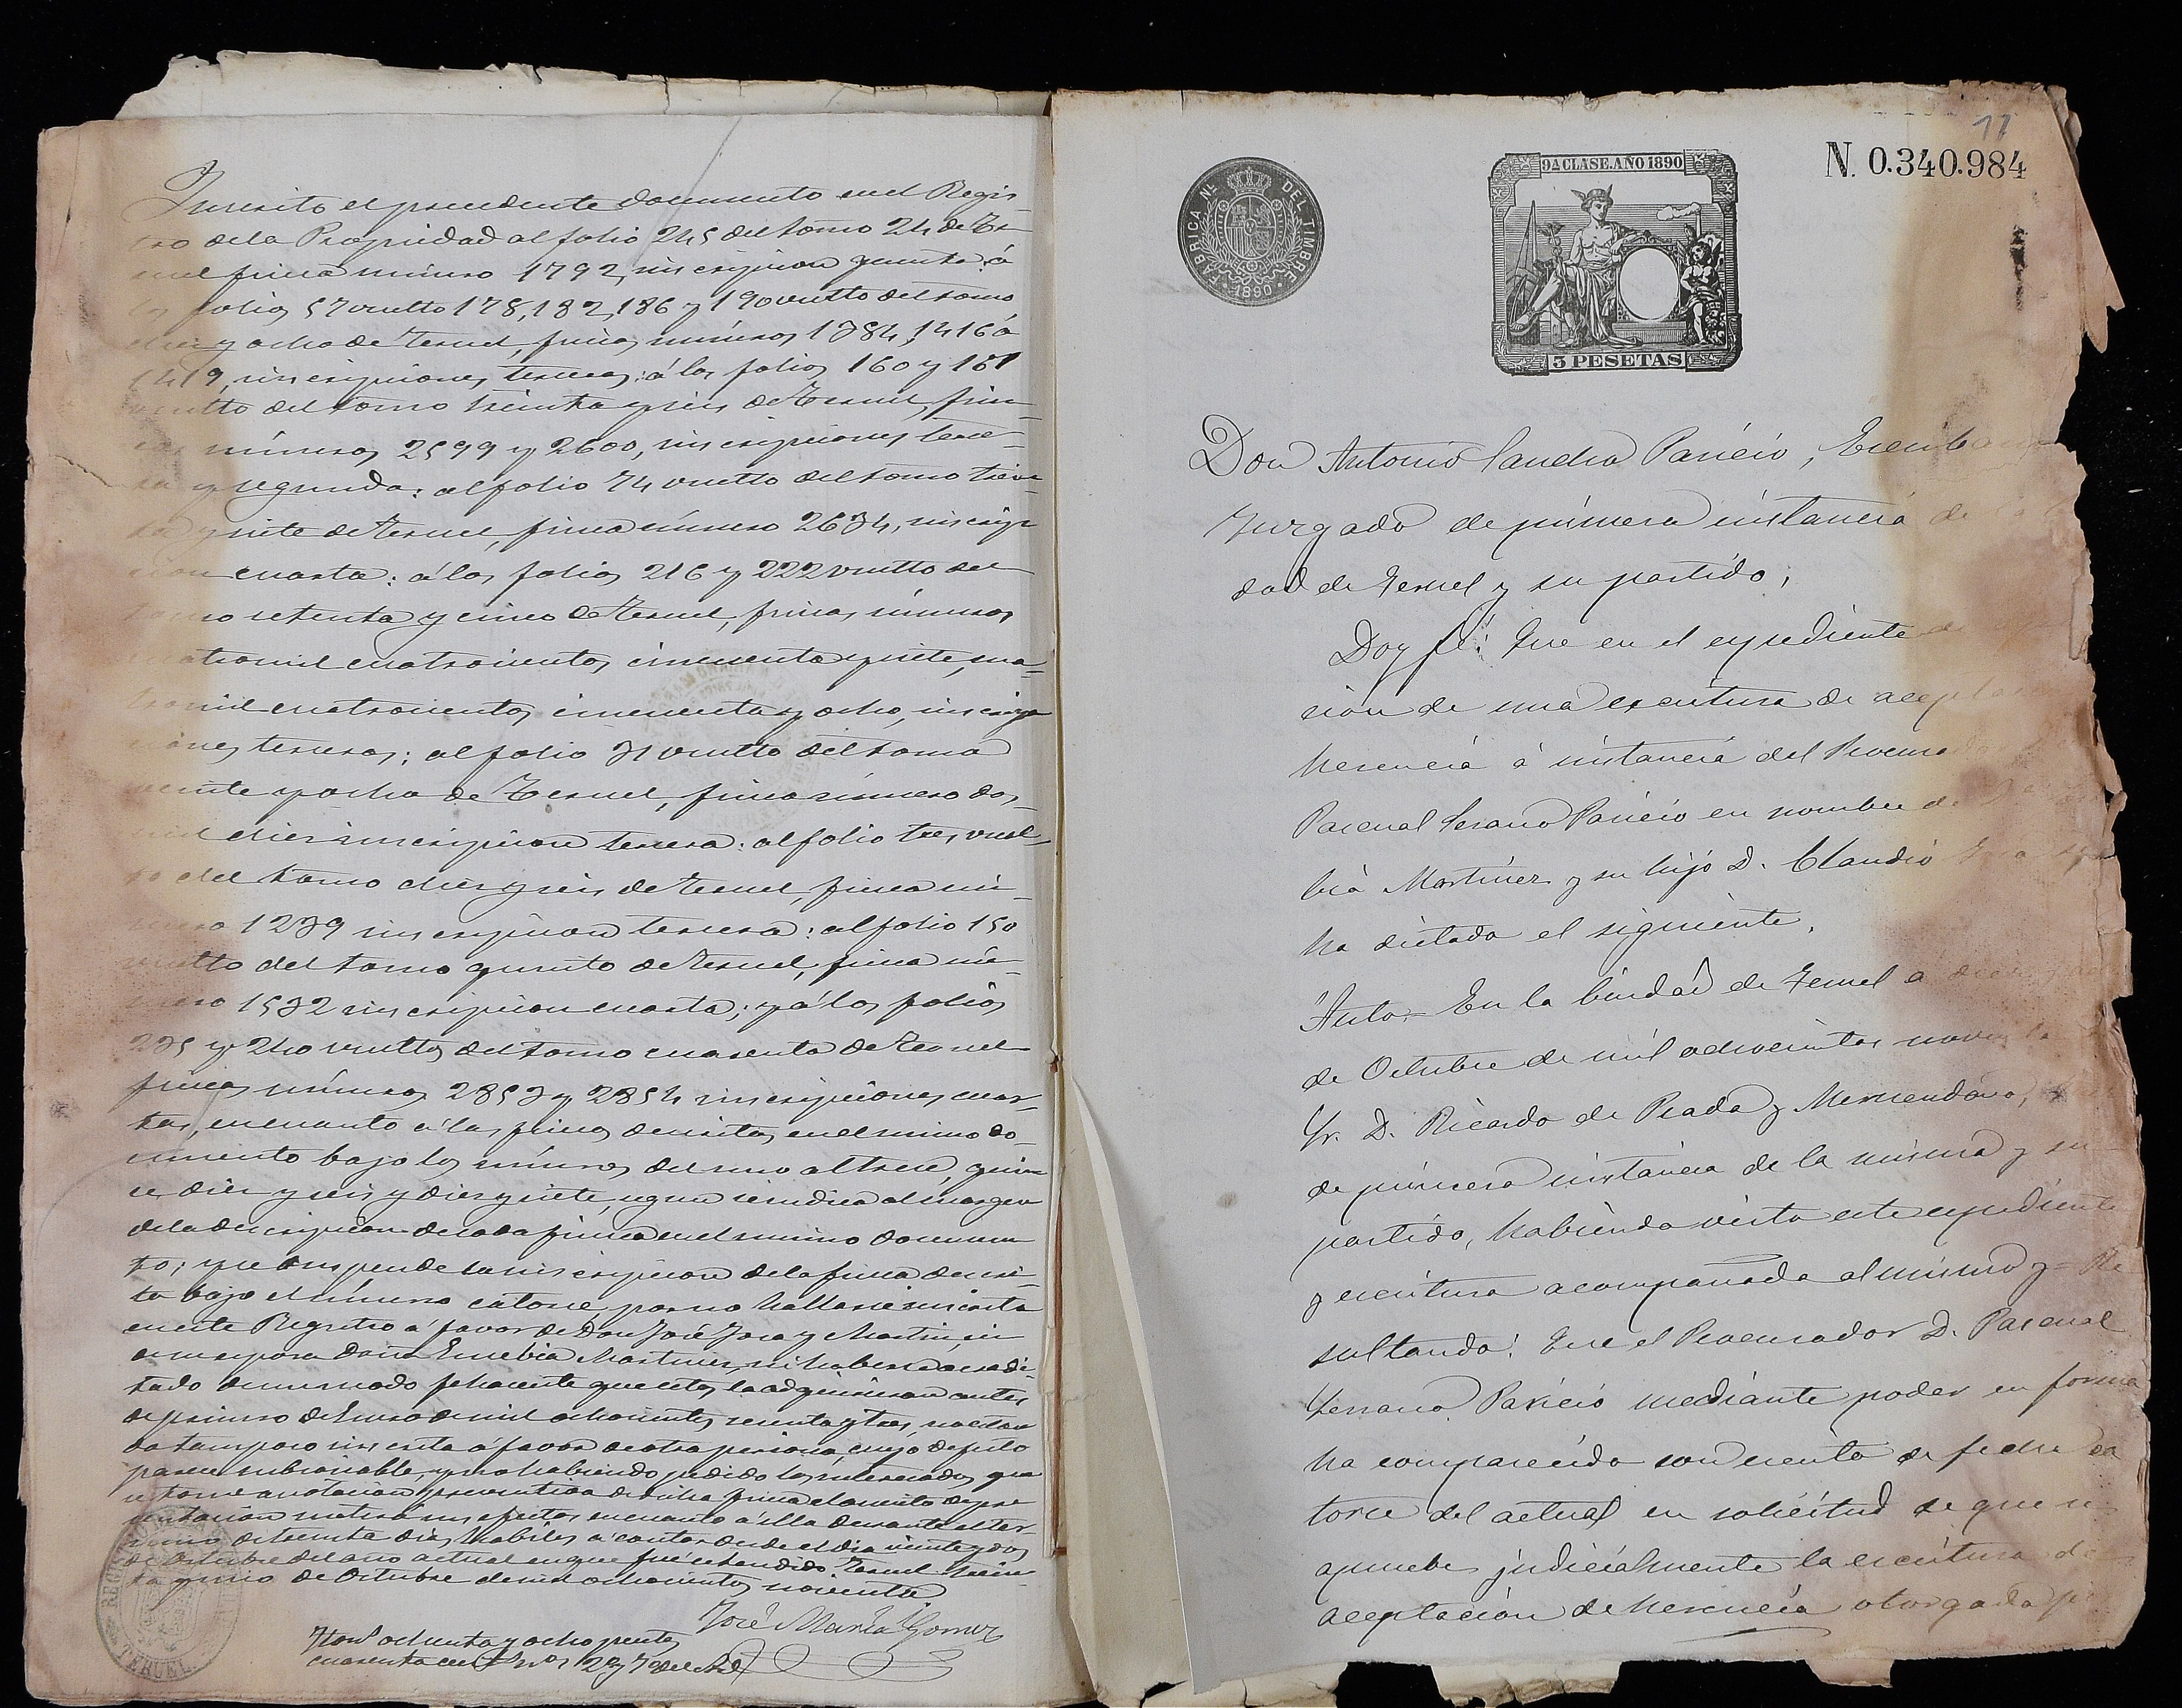 Inscrito el precedente documento en el Regis-
tro de la Propiedad al folio 245 del tomo 24 de Te-
ruel finca número 1792, inscripcion quinta: á
los folios 57 vuelto 178, 182, 186 y 190 vuelto del tomo
diez y ocho de Teruel, fincas números 1384, 1416 á
1419, inscripciones terceras: á los folios 160 y 181
vuelto del tomo treinta y seis de Teruel, fin-
cas números 2599 y 2600, inscripciones terce-
ra y segunda: al folio 74 vuelto del tomo trein-
ta y siete de Teruel, finca número 2634, inscrip-
cion cuarta: á los folios 216 y 222 vuelto del
tomo setenta y cinco de Teruel, fincas números
cuatro mil cuatrocientos cincuenta y siete, cua-
tro mil cuatrocientos cincuenta y ocho, inscrip-
ciones terceras; al folio 31 vuelto del tomo
veinte y ocho de Teruel, finca número dos
mil diez inscripcion tercera: al folio tres vuel-
to del tomo diez y seis de Teruel, finca nú-
mero 1239 inscripcion tercera: al folio 150
vuelto del tomo quinto de Teruel, finca nú-
mero 1532 inscripcion cuarta; y á los folios
235 y 240 vueltos del tomo cuarenta de Teruel
fincas números 2853 y 2854 inscripciones cuar-
tas, en cuanto á las fincas descritas en el mismo do-
cumento bajo los números del uno al trece, quin-
ce diez y seis y diez y siete, segun se indica al margen
de la descripcion de cada finca en el mismo documen-
to; y se suspende la inscripcion de la finca descri-
ta bajo el número catorce, por no hallarse inscrita
en este Registro á favor de Don José Joaq y Martin, ni
de su esposa Doña Eusebia Martinez, ni haberse acredi-
tado de un modo fehaciente que estos la adquirieron antes
de primero de Enero de mil ochocientos sesenta y tres, no estan-
do tampoco inscrita á favor de otra persona, cuyo defecto
parece subsanable, y no habiendo pedido los interesados que
se tome anotacion preventiva de dicha finca el asiento de pre-
sentacion surtirá sus efectos en cuanto á ella durante el tér-
mino de treinta dias hábiles á contar desde el dia veinte y dos
de Octubre del año actual en que fué estendido. Teruel trein-
ta y uno de Octubre de mil ochocientos noventa
José María Gomez
Hons. ochenta y ocho pesetas
cuarenta cents. nos 2 y 7 del Ard.
REGISTRO DE LA
TERUEL
11
FABRICA NL. DEL TIMBRE
1890
9A CLASE. AÑO 1890
3 PESETAS
N. 0.340.984
Don Antonio Sanchez Paricio, Escribano
Juzgado de primera instancia de la
dad de Teruel y su partido;
Doy fé: Que en el expediente de
cion de una escritura de aceptacion
herencia á instancia del Procurador
Pascual Serrano Paricio en nombre de Dª
bia Martinez y su hijo D. Claudio
ha dictado el siguiente,
"Auto.= En la Ciudad de Teruel a diez
de Octubre de mil ochocientos noventa
Sr. D. Ricardo de Prada y Mernendano,
de primera instancia de la misma y su
partido, habiendo visto este expediente
y escritura acompañada al mismo y= Re
sultando: Que el Procurador D. Pascual
Serrano Paricio mediante poder en forma
ha comparecido con escrito de fecha ca
torce del actual en solicitud de que se
apruebe judicialmente la escritura de
aceptación de herencia otorgada por